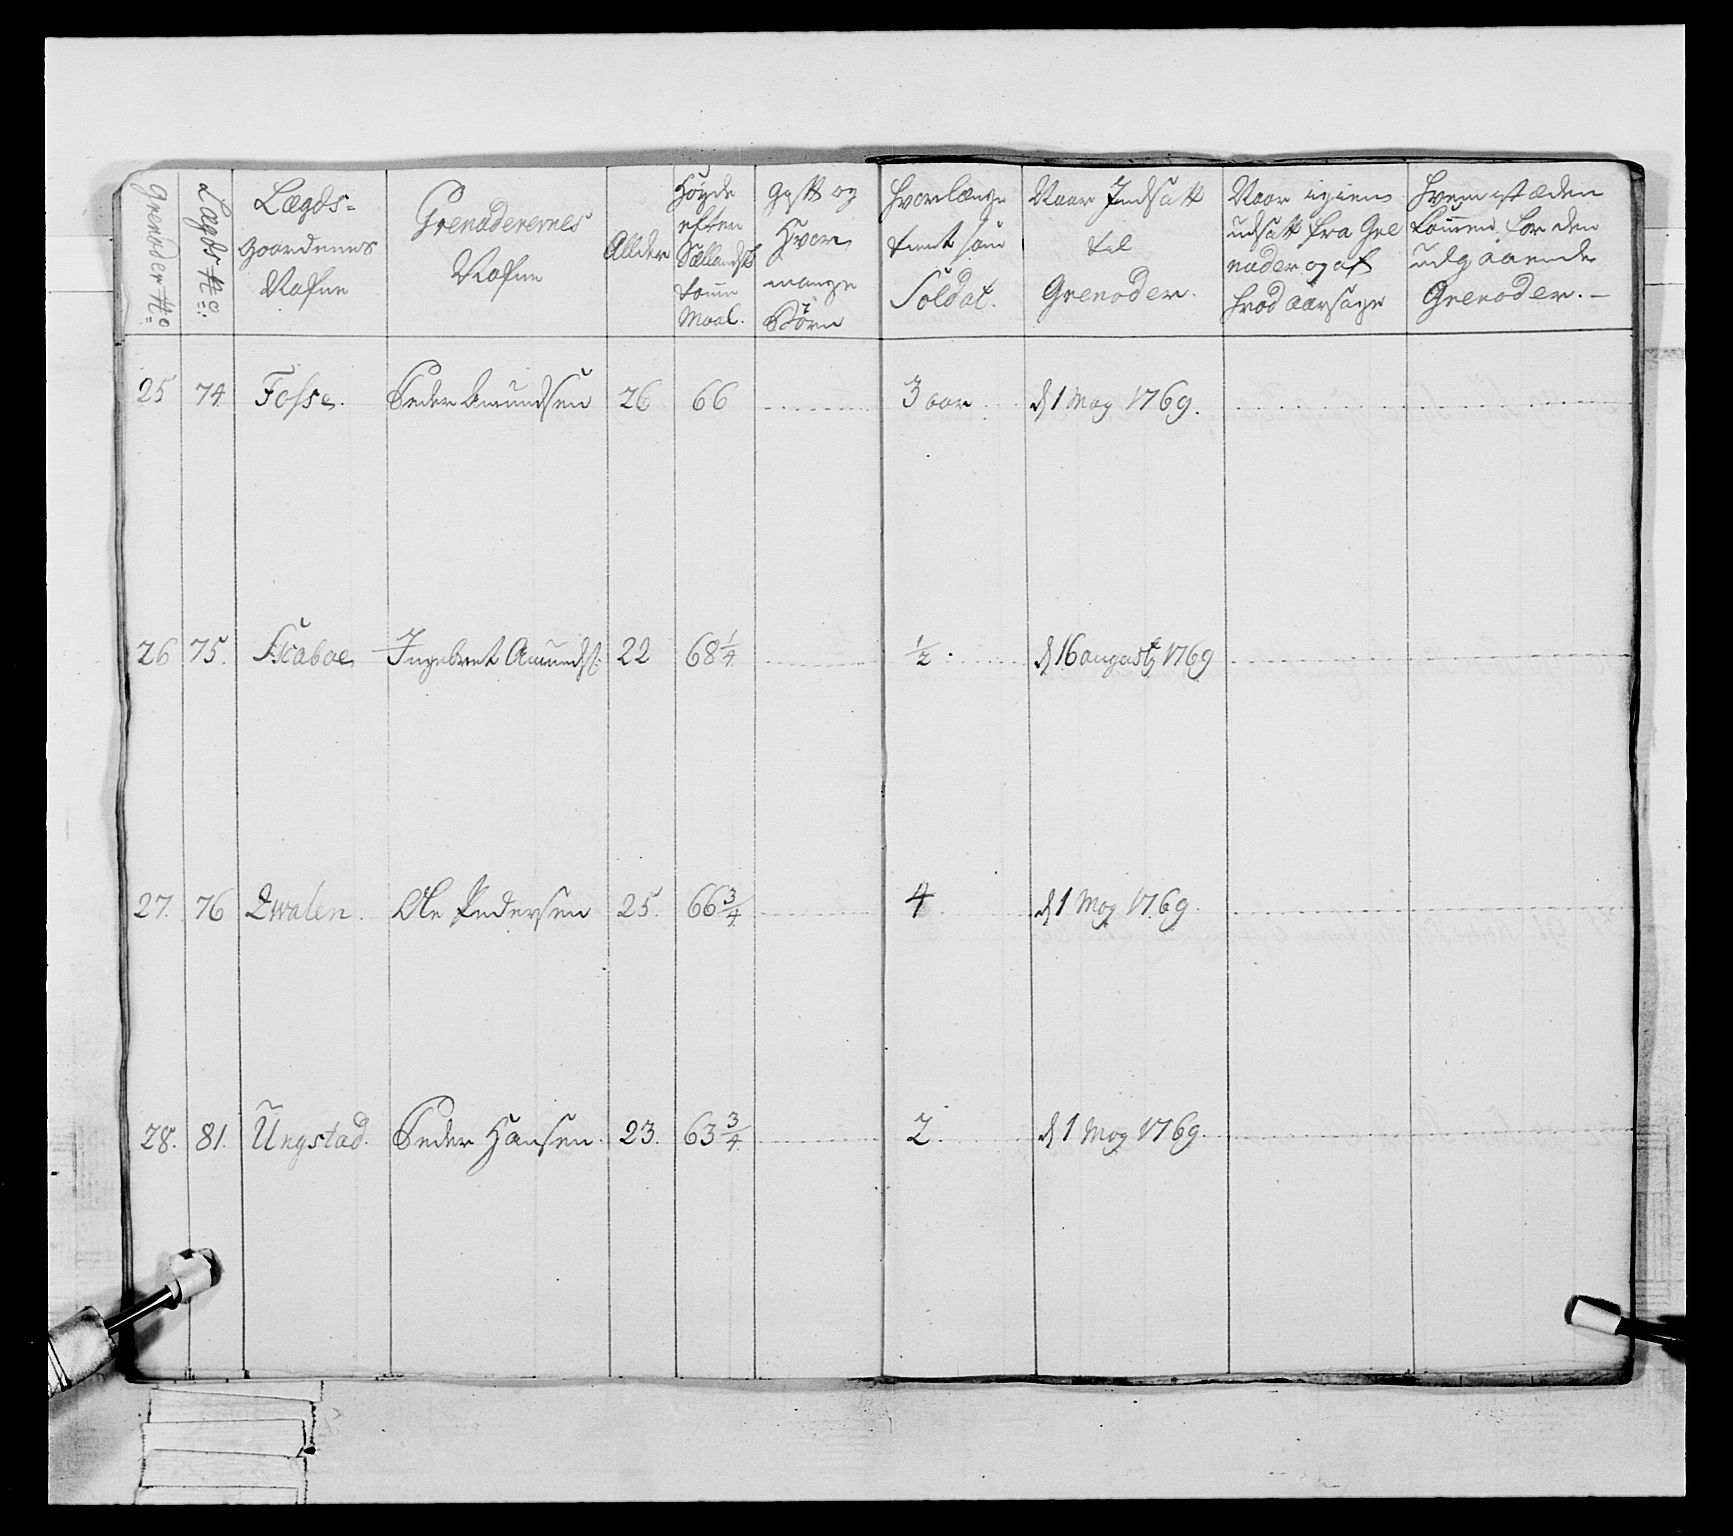 Grenoder No
Lægds No:
Lægds-
Gaardenes
Nafne
Grenaderernes
Nafne
Allder
Høyde
efter
Sællandsk
tomme
Maal.
Gift og
Hvor
mange
Børn
hvorlænge
tient som
Soldat.
Naar Indsatt
til
Grenoder.
Naar igien
udsatt fra Gre
nader og af
hvad aarsage
hvem istæden
kommen for den
udgaaende
Grenoder. –
25 74 Fosse. Peder Amundsen 26 66 3 aar d 1 May 1769.
26 75. Scaboe Ingebret Amunds: 22 68 1/4 1/2. d 16 augusty 1769
27. 76 Qwalen. Ole Pedersen 25. 66 3/4 4 d 1 May 1769.
28. 81. Ungstad. Peder Hansen. 23. 63 3/4 2. d 1 May 1769.